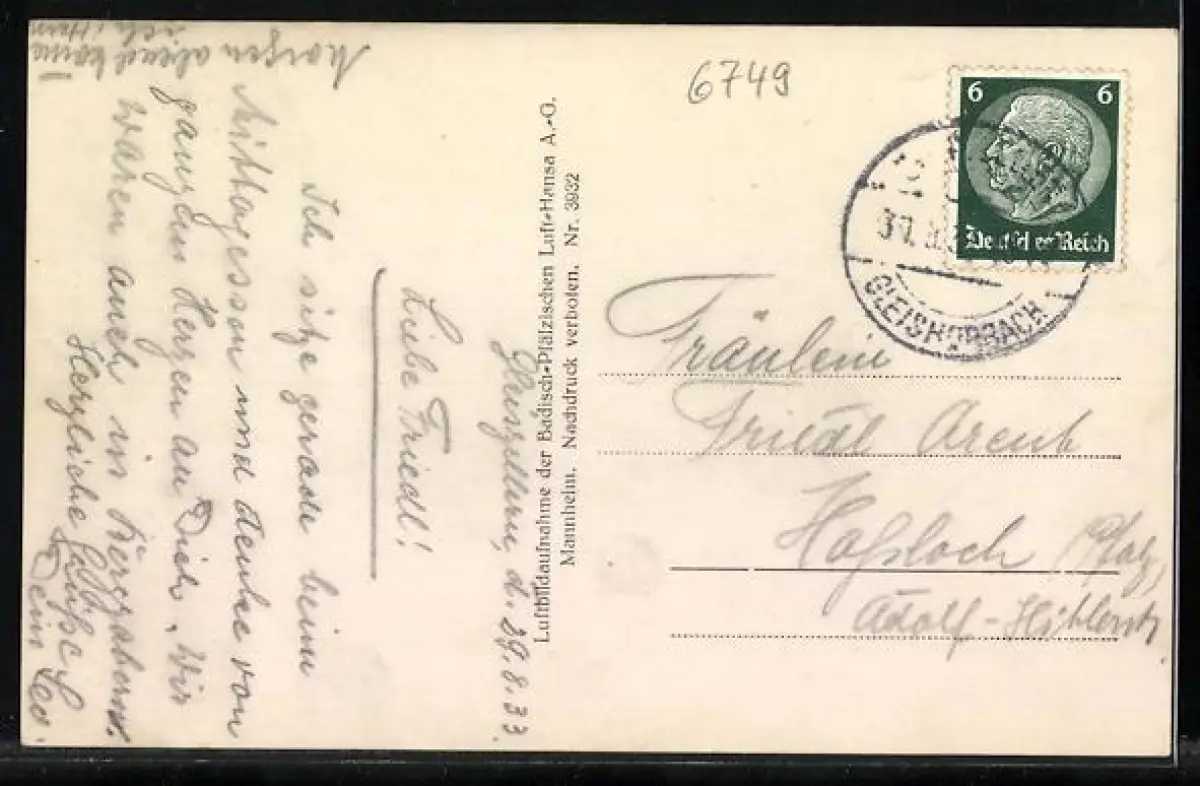 Morgen abend komme
ich heim!
d. 29.8.33.
Liebe Friedl!
Ich sitze gerade beim
Mittagessen und denke von
ganzem Herzen an Dich. Wir
waren auch in Bergzabern.
Herzliche Grüße
Dein Leo.
Luftbildaufnahme der Badisch-Pfälzischen Luft-Hansa A.-G.
Mannheim. Nachdruck verboten. Nr. 3932
6749
6 6
Deutsches Reich
GLEISHORBACH
Fräulein
Friedl
Haßloch Pfalz,
Adolf-Hitlerstr.